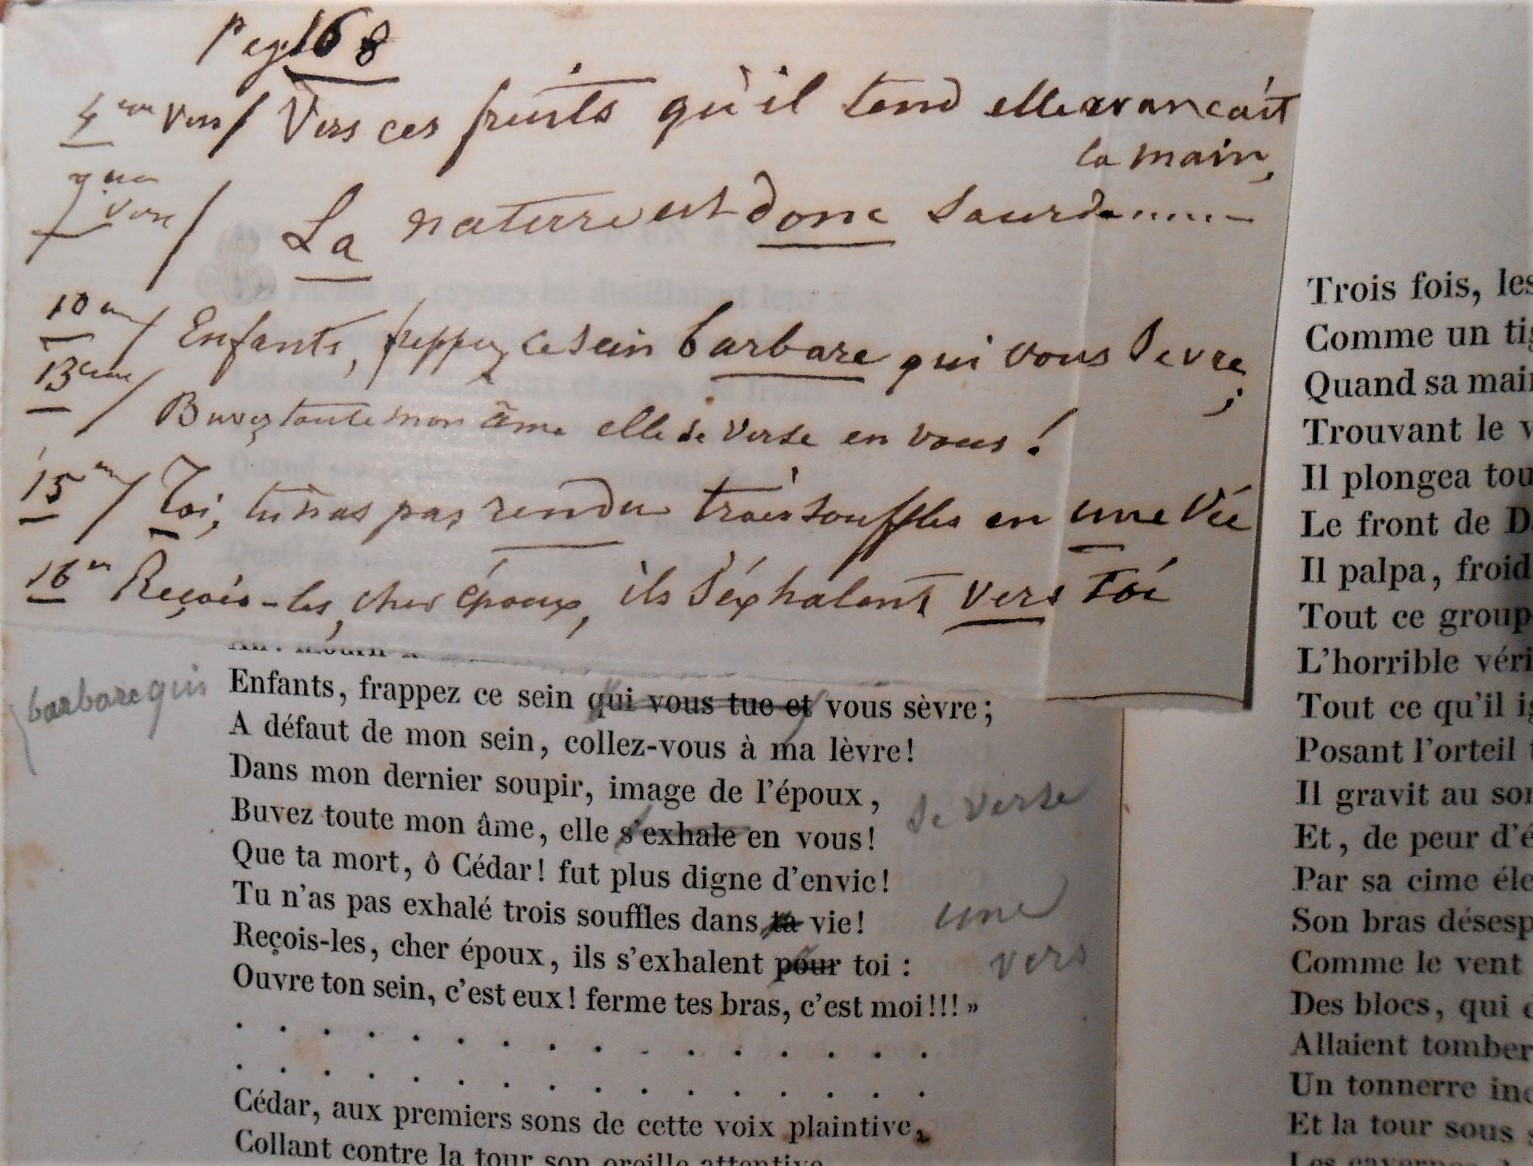 Pag 168
4eme Vers / Vers ces fruits qu'il tend elle avançait
la main,
7eme Vers / La nature est donc sourde.......
10em / Enfants, frappez ce sein barbare qui vous sevre;
13eme / Buvez toute mon âme elle se verse en vous !
15em / Toi, tu n'as pas rendu trois souffles en une Vie
16em Reçois-les, cher époux, ils s'éxhalent vers toi
barbare qui
Enfants, frappez ce sein qui vous tue et vous sèvre;
A défaut de mon sein, collez-vous à ma lèvre!
Dans mon dernier soupir, image de l'époux,
Buvez toute mon âme, elle s'exhale en vous!
se verse
Que ta mort, ô Cédar! fut plus digne d'envie!
Tu n'as pas exhalé trois souffles dans ta vie!
une
Reçois-les, cher époux, ils s'exhalent pour toi :
vers
Ouvre ton sein, c'est eux! ferme tes bras, c'est moi!!! »
. . . . . . . . . . . . . . . .
. . . . . . . . . . . . . . . .
Cédar, aux premiers sons de cette voix plaintive,
Collant contre la tour son oreille attentive
Trois fois, les
Comme un tig
Quand sa mai
Trouvant le v
Il plongea tou
Le front de D
Il palpa, froid
Tout ce group
L'horrible véri
Tout ce qu'il i
Posant l'orteil
Il gravit au so
Et, de peur d'é
Par sa cime éle
Son bras désesp
Comme le vent
Des blocs, qui
Allaient tomber
Un tonnerre in
Et la tour sous